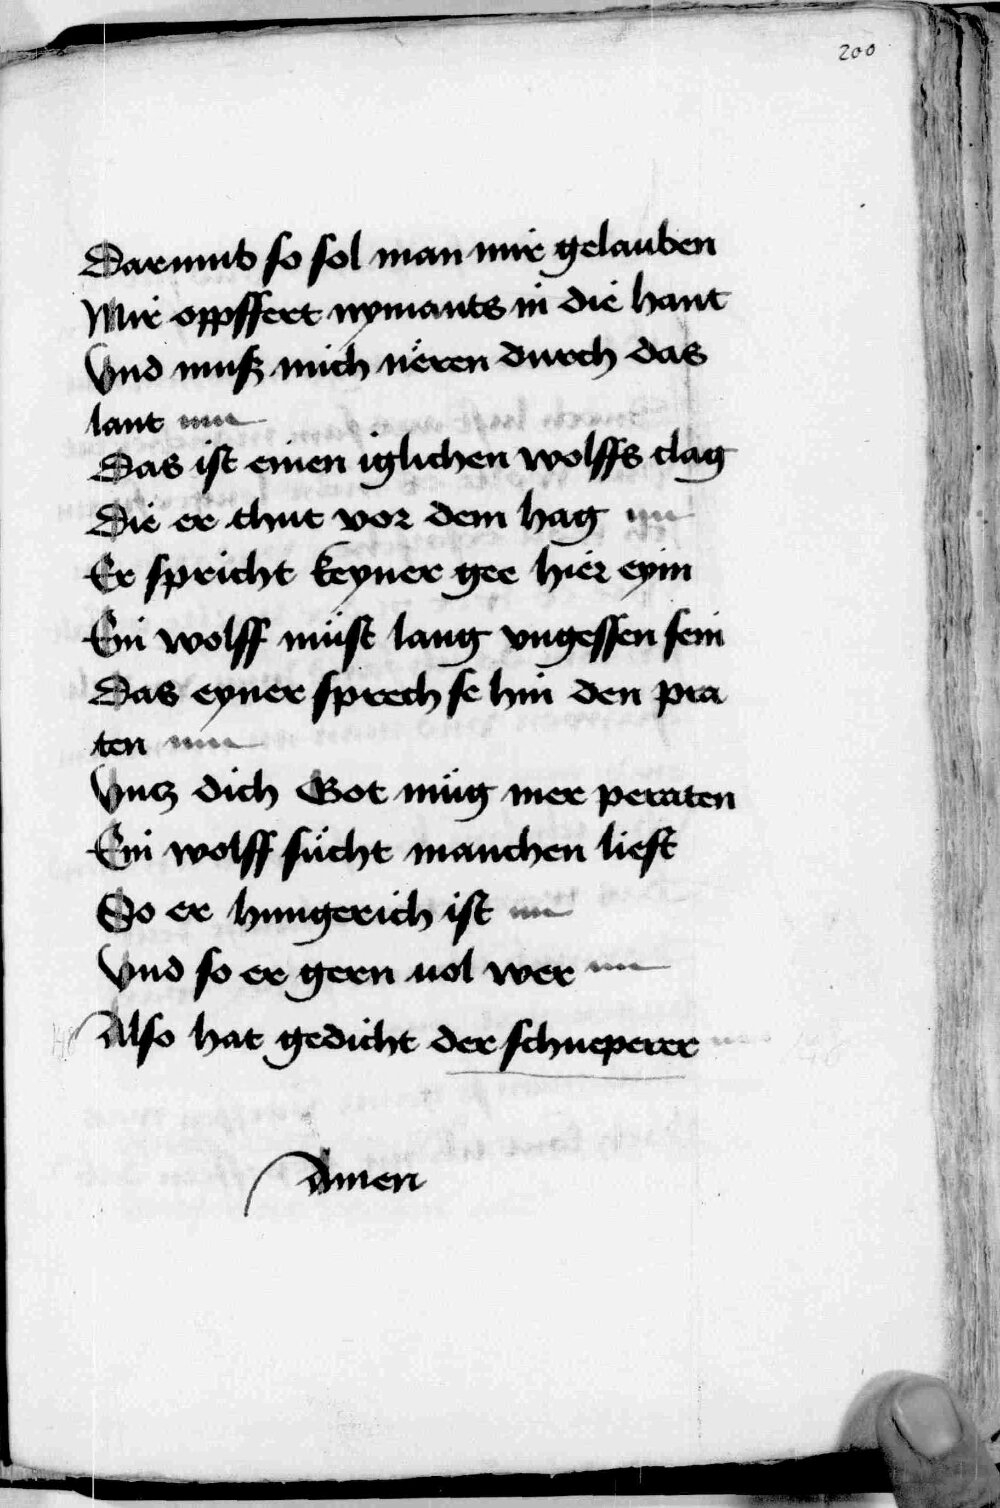 200
Darumb so sol man mir gelauben
Mir oppffert nymants in die hant
Vnd muß mich nëren durch das
lant
Das ist einen iglichen wolffs clag
Die er thut vor dem hag
Er spricht keyner gee hier eyin
Ein wolff müst lang vngessen sein
Das eyner sprech se hin den pra
ten
Vntz dich Got müg mer peraten
Ein wolff sücht manchen liest
So er hungerich ist
Vnd so er gern uol wer
Also hat gedicht der schneperer
Amen